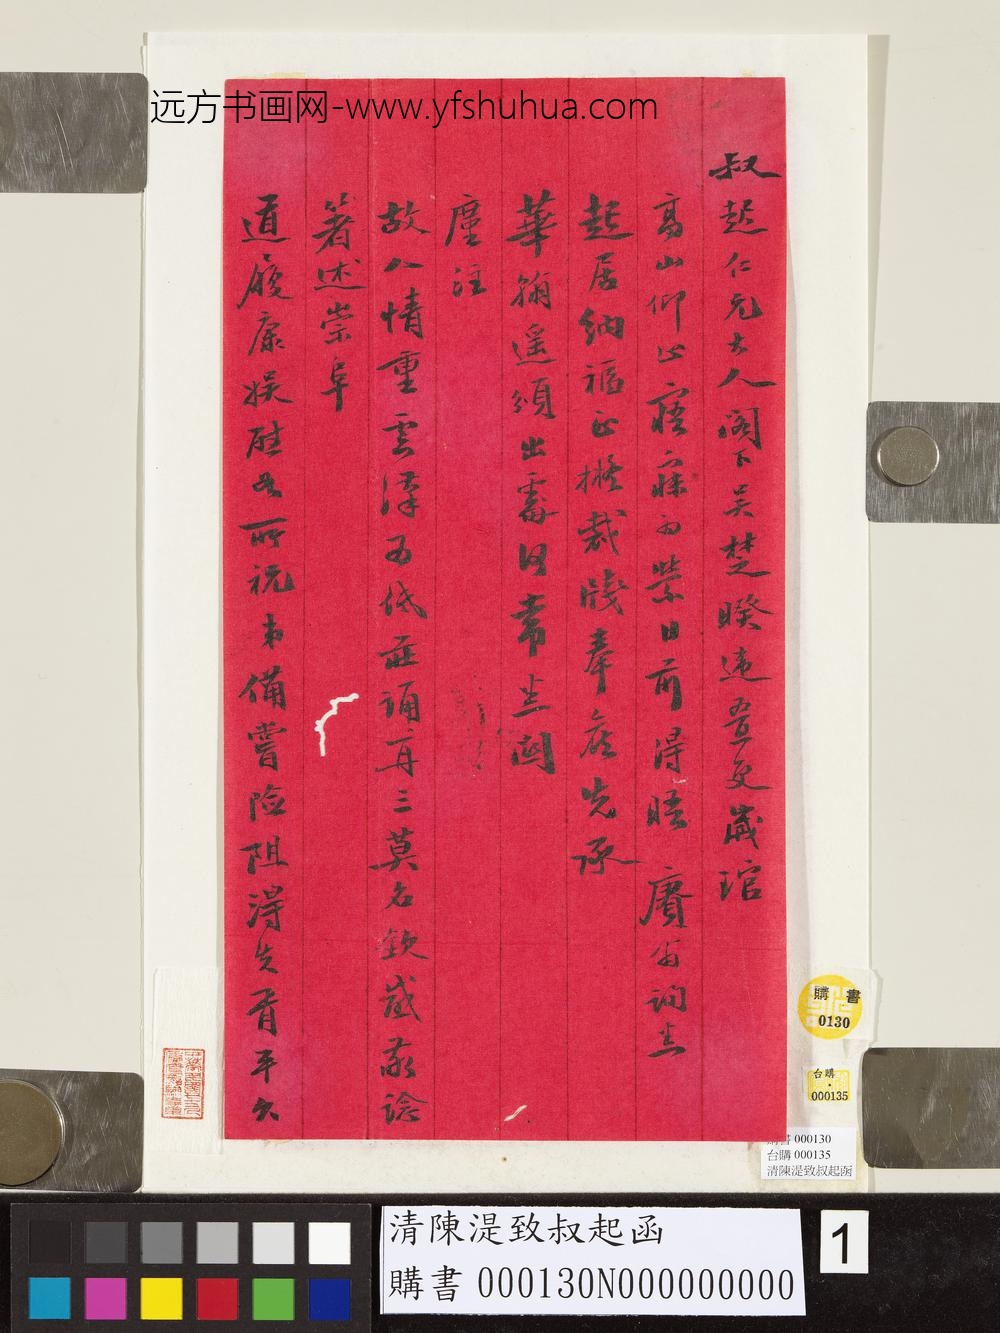 远方书画网-www.yfshuhua.com
叔起仁兄大人阁下吴楚暌违五更歲琯
高山仰止寤寐為勞日前得晤賡甫詢悉
起居納福正擬裁牋奉候先承
華翰遥頒出處何常悉關
廑注
故人情重雲漢而低莊誦再三莫名欽感敬諗
著述崇阜
道履康娱慰如所祝弟備嘗險阻得失胥平久
購書
0130
台購
000135
購書 000130
台購 000135
清陳湜致叔起函
清陳湜致叔起函
購書 000130N000000000
1